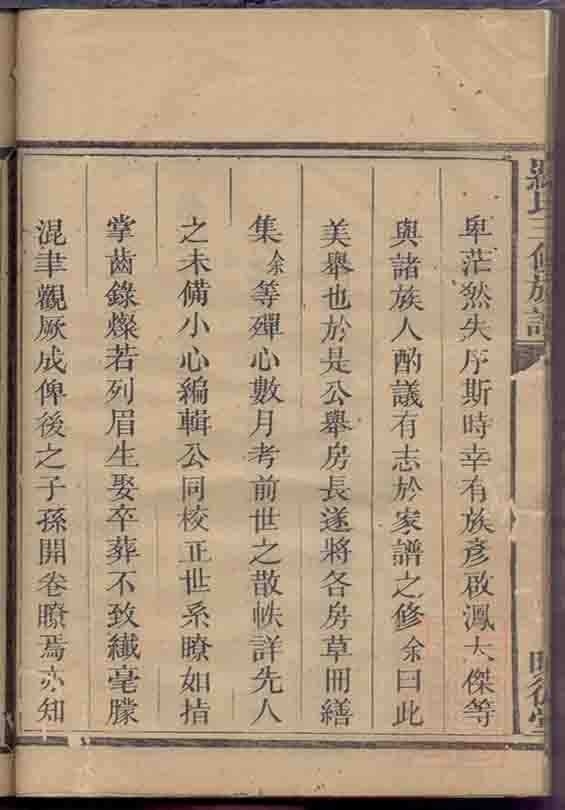 氏三修族譜
卑茫然失序斯時幸有族彥啟鳳大傑等
與諸族人酌議有志於家譜之修余曰此
美舉也於是公舉房長遂將各房草冊繕
集余等殫心數月考前世之散帙詳先人
之未備小心編輯公同校正世系瞭如指
掌齒錄燦若列眉生娶卒葬不致纖毫朦
混聿觀厥成俾後之子孫開卷瞭焉亦知